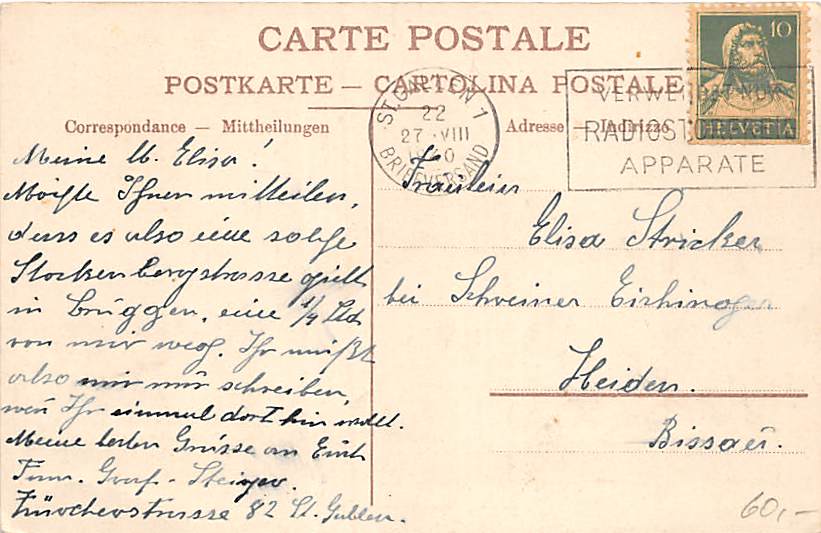 CARTE POSTALE
POSTKARTE — CARTOLINA POSTALE
Correspondance — Mittheilungen
Adresse — Indirizzo
10
HELVETIA
ST. GALLEN 1
22
27. VIII
1940
BRIEFVERSAND
VERWENDET NUR
RADIOSTÖRFREIE
APPARATE
Meine l. Elisa!
Möchte Ihnen mitteilen,
dass es also eine solche
Stockenbergstrasse gibt
in Bruggen, eine 1/4 Std
von mir weg. Ihr müßt
also mir nur schreiben,
wen Ihr einmal dort hin wollt.
Meine besten Grüsse an Euch
Fam. Graf-Steiger
Zürcherstrasse 82 St. Gallen.
Fräulein
Elisa Stricker
bei Schreiner
Heiden.
Bissau.
60,-